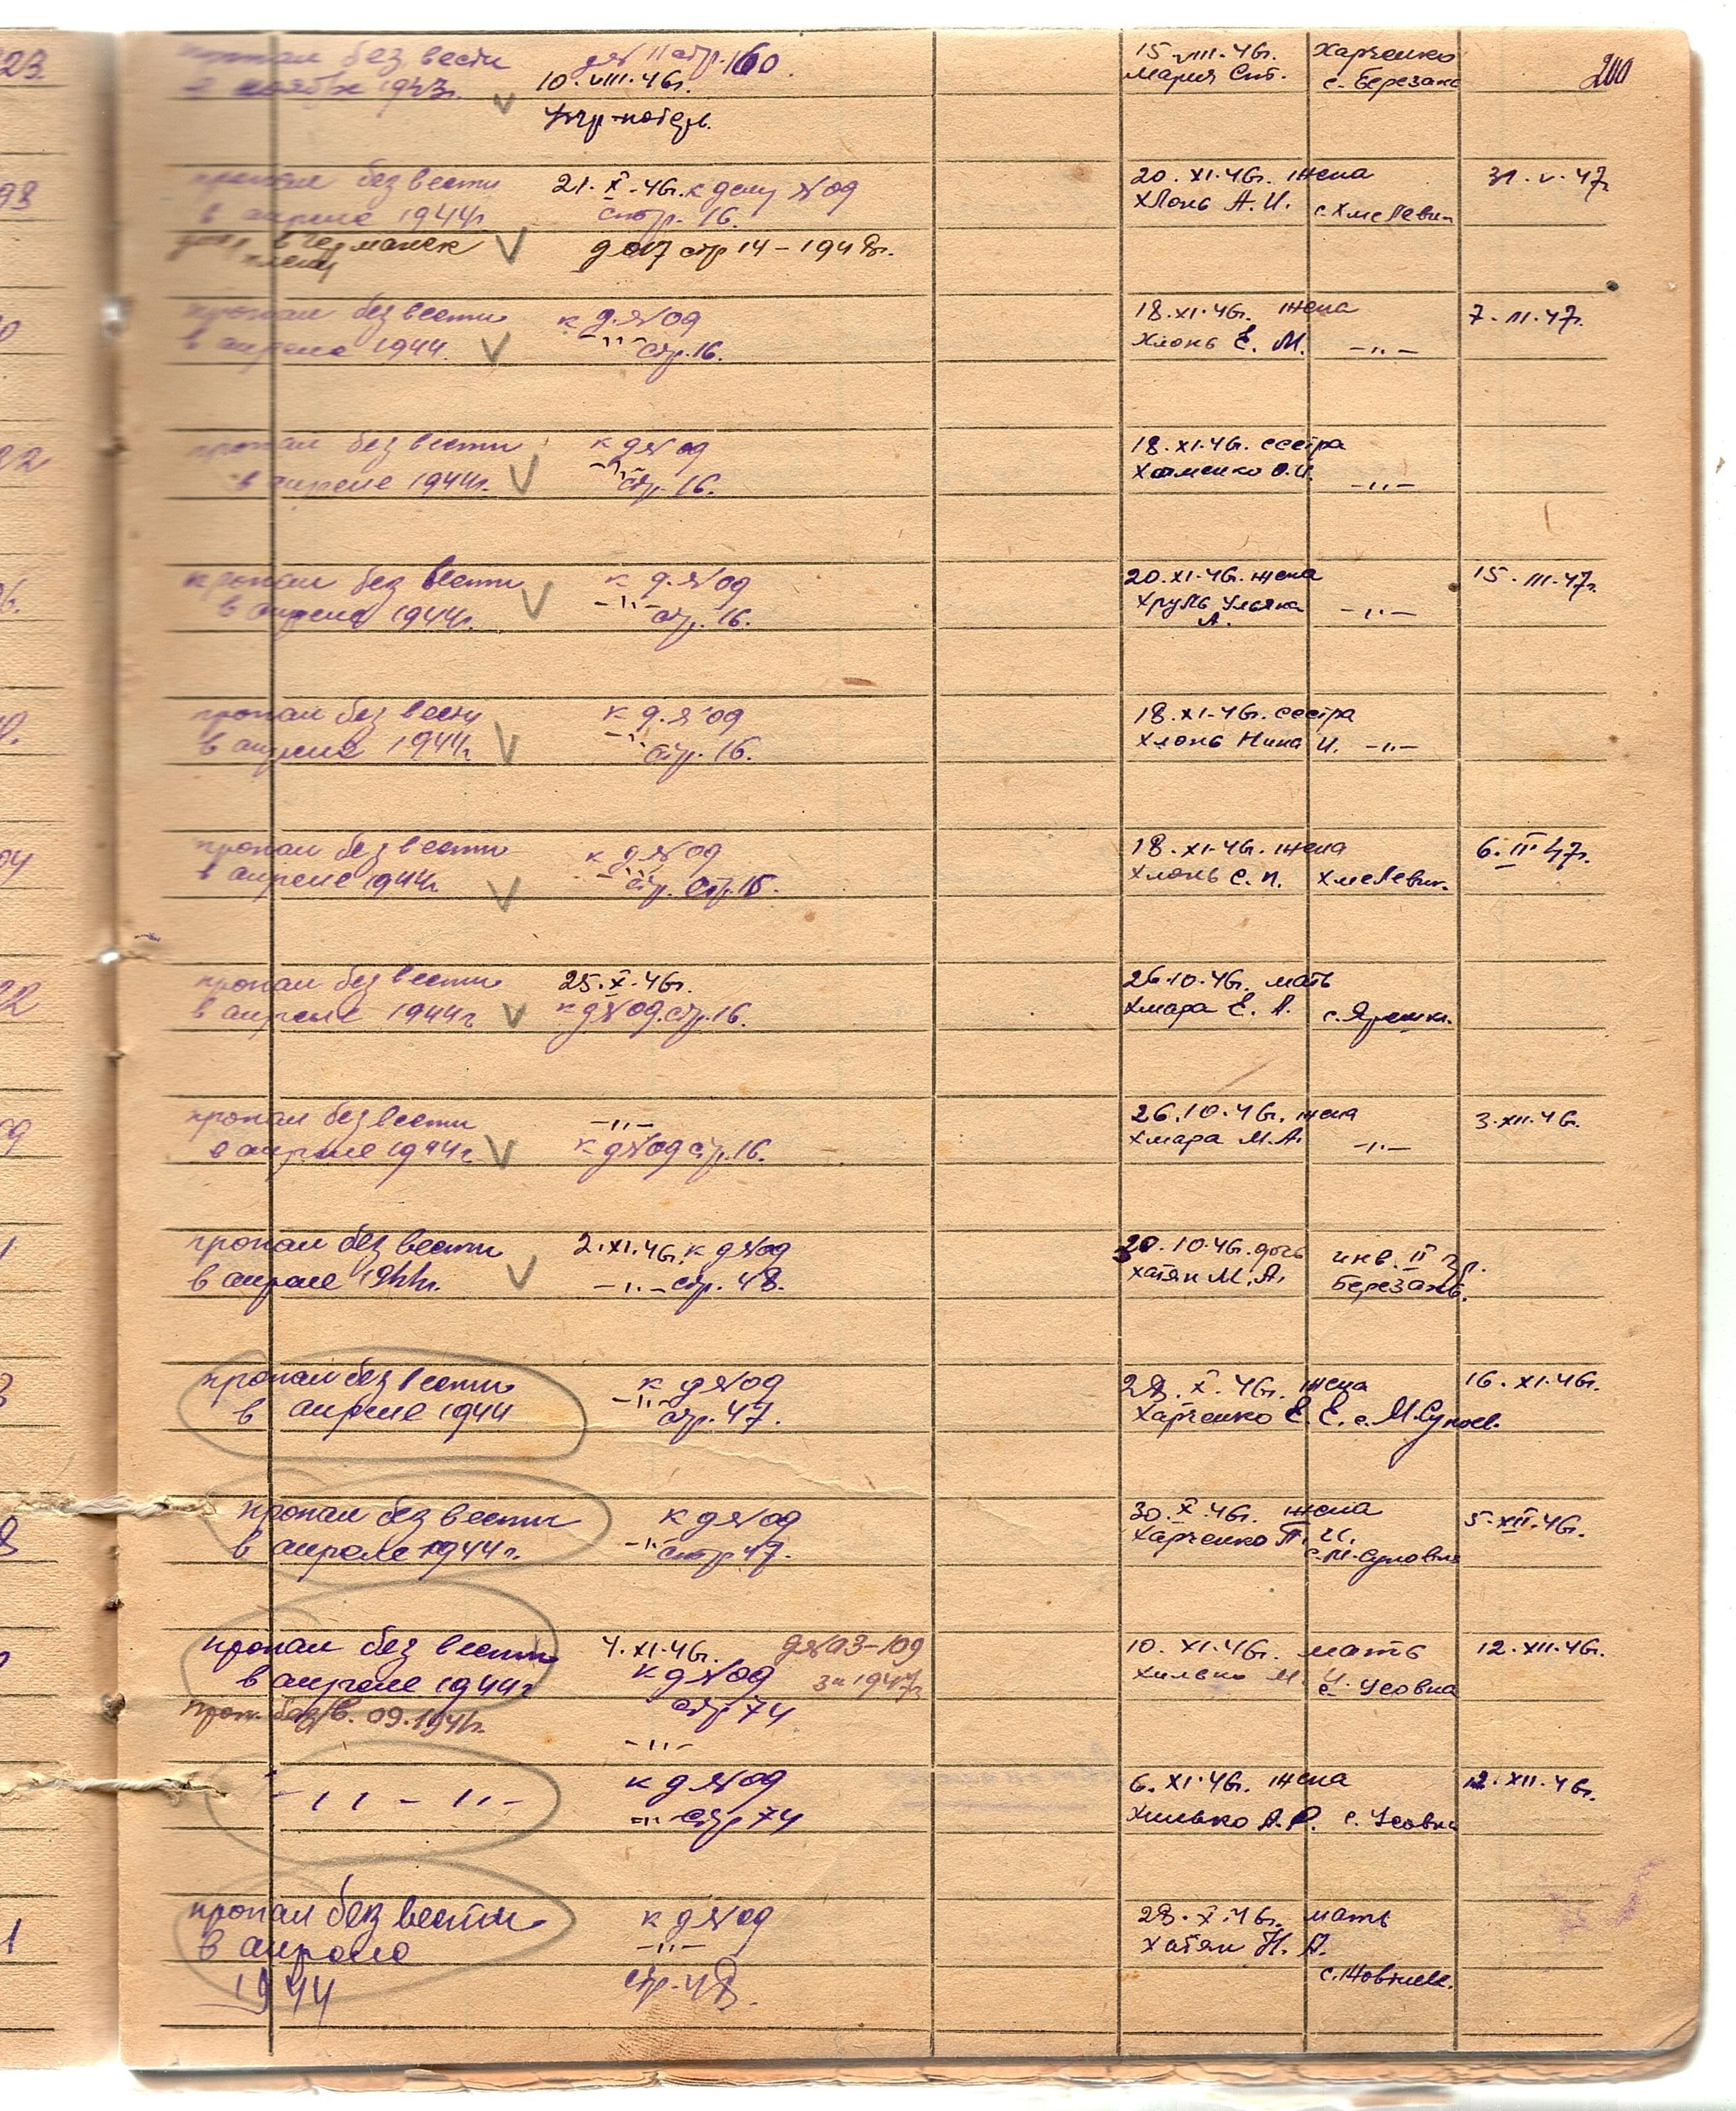 23.
пропал без вести
в ноябре 1943г.
д№ 11 стр. 160.
10.VIII.46г.
15.VIII.46г.
Мария Ст.
Харченко
с. Березань
200
98
пропал без вести
в апреле 1944г.
в Германск
плену
21.X.46г. к делу №09
стр. 16.
д 017 стр 14 - 1948г.
20.XI.46г. жена
Хлонь А.И.
с. Хмелевик
31.V.47г
пропал без вести
в апреле 1944.
к д.№09
-"- стр.16.
18.XI.46г. жена
Хлонь Е. М.
-"-
7.III.47г.
22
пропал без вести
в апреле 1944г.
к д№09
-"- стр. 16.
18.XI.46г. сестра
Хоменко О.И.
-"-
6.
пропал без вести
в апреле 1944г.
к д.№09
-"- стр. 16.
20.XI.46г. жена
Хруль Ульяна
А.
-"-
15.III.47г.
пропал без вести
в апреле 1944г
к д.№09
-"- стр. 16.
18.XI.46г. сестра
Хлонь Нина И.
-"-
04
пропал без вести
в апреле 1944г
к д№09
стр. стр.16.
18.XI.46г. жена
Хлонь С.П.
Хмелевик.
6.II 47г.
22
пропал без вести
в апреле 1944г
25.X.46г.
к д№09.стр.16.
26.10.46г. мать
Хмара Е. А.
с. Ярешки.
9
пропал без вести
в апреле 1944г
-"-
к д№09 стр.16.
26.10.46г. жена
Хмара М.А.
-"-
3.XII.46г.
1
пропал без вести
в апреле 1944г.
2.XI.46г. к д№09
-"- стр. 48.
30.10.46г. дочь
Хатян М.А.
инв. II гр.
Березань.
3
пропал без вести
в апреле 1944
к д№09
-"- стр.47.
28.X.46г. жена
Харченко Е.Е. с. М.Супоев.
16.XI.46г.
8
пропал без вести
в апреле 1944г.
к д№09
-"- стр 47.
30.X.46г. жена
Харченко П.И.
с.М-Суповка
5.XII.46г.
пропал без вести
в апреле 1944г
проп. без/в. 09.1941г.
4.XI.46г.
к д№09
стр 74
д№03-109
за 1947г
10.XI.46г. мать
Хилько М.И.
с. Усовка
12.XII.46г.
-"-
-"-"-
к д№09
-"- стр 74
6.XI.46г. жена
Хилько А.Р.
с. Усовка
12.XII.46г.
1
пропал без вести
в апреле
1944
к д№09
-"-
стр.48.
28.X.46г. мать
Хатян Н. А.